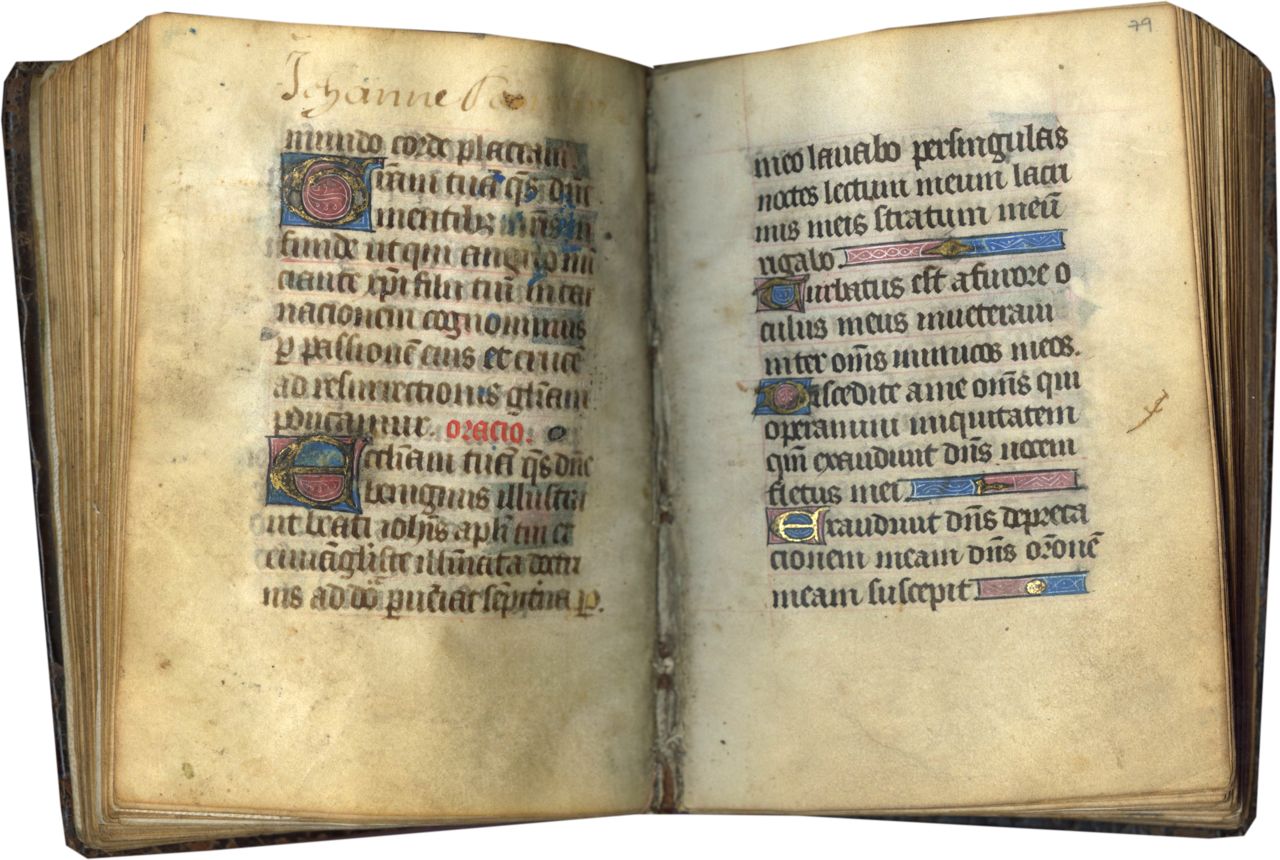 Johanne
mundo corde placeam.
Graam tuā q̄s dn̄e
mentibꝫ nr̄is in
funde ut qui angelo nū
ciante xp̄i filii tui incar
nacionem cognouimus
ꝑ passionē eius et crucē
ad resurrectionis gl̄iam
ꝑducamur. oracio.
Ecclīam tuā q̄s dn̄e
benignus illustra
ut beati ioh̄is apl̄i tui et
euuāgliste illūīata doctri
nis ad dōa ꝑueniat sēpit̄na ꝑ.
79
meo lauabo per singulas
noctes lectum meum lacri
mis meis stratum meū
rigabo.
Turbatus est a furore o
culus meus inueteraui
inter om̄s inimicos meos.
Discedite a me om̄s qui
operamini iniquitatem
qm̄ exaudiuit dn̄s uocem
fletus mei.
Exaudiuit dn̄s depreca
cionem meam dn̄s or̄onē
meam suscepit.